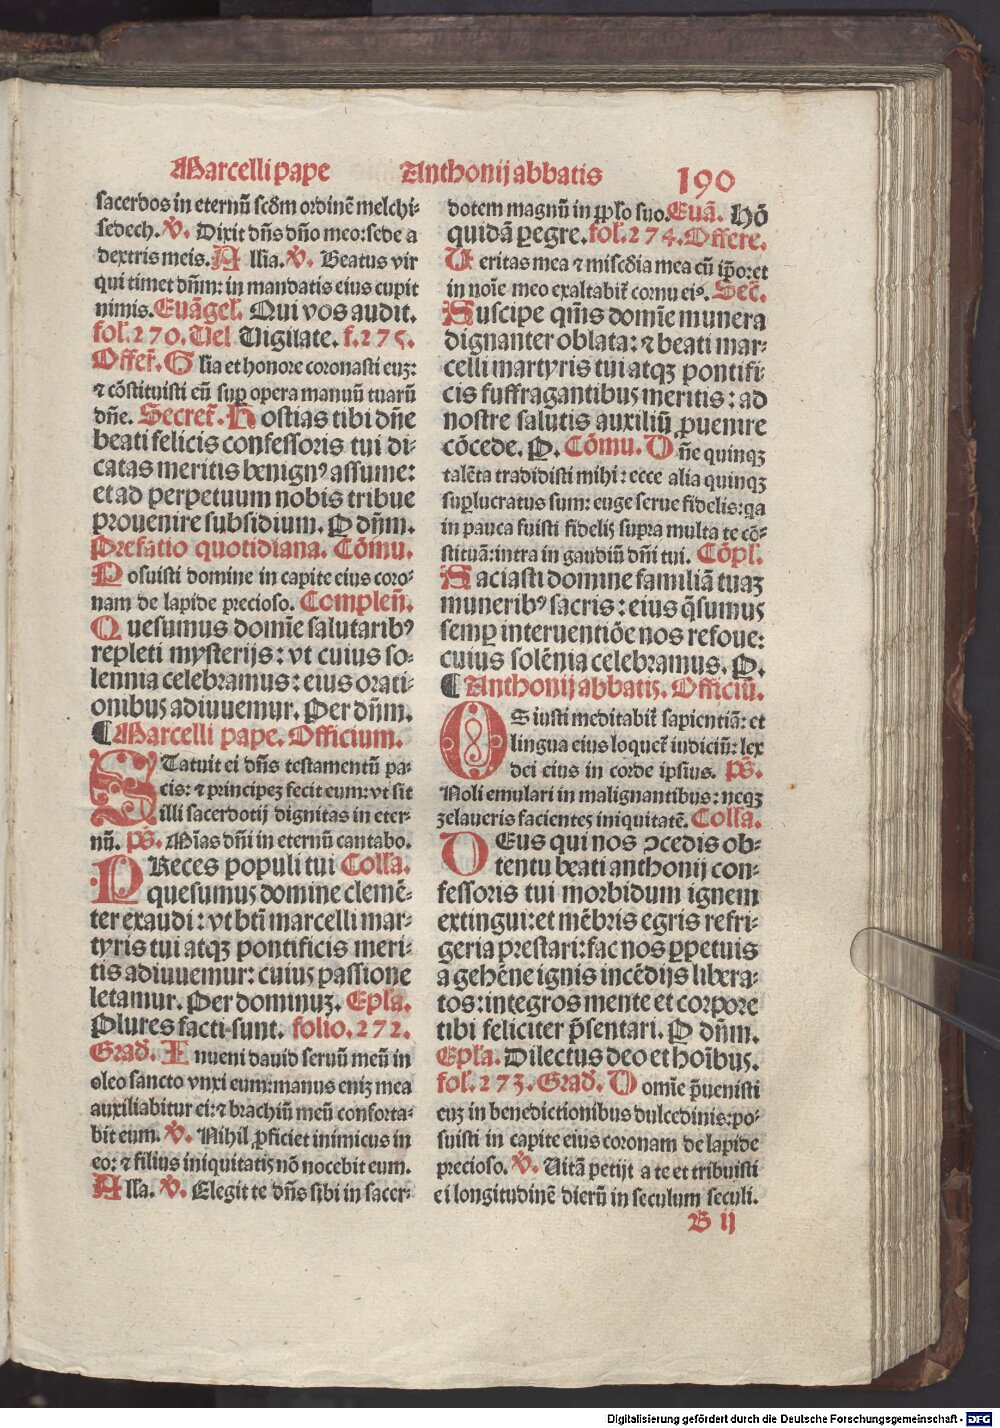 Marcelli pape Anthonij abbatis 190
sacerdos in eternũ scðm ordinẽ melchi-
sedech. ℣. Dixit dñs dño meo: sede a
dextris meis. Allia. ℣. Beatus vir
qui timet dñm: in mandatis eius cupit
nimis. Euãgel. Qui vos audit.
fol. 270. Uel Uigilate. f. 275.
Offer. Glia et honore coronasti euȝ:
⁊ cõstituisti eũ sup opera manuũ tuarũ
dñe. Secret. Hostias tibi dñe
beati felicis confessoris tui di-
catas meritis benignꝰ assume:
et ad perpetuum nobis tribue
prouenire subsidium. P dñm.
Prefatio quotidiana. Cõmu.
Posuisti domine in capite eius coro-
nam de lapide precioso. Compleñ.
Quesumus domĩe salutaribꝰ
repleti mysterijs: vt cuius so-
lennia celebramus: eius orati-
onibus adiuuemur. Per dñm.
¶ Marcelli pape. Officium.
STatuit ei dñs testamentũ pa-
cis: ⁊ principeȝ fecit eum: vt sit
illi sacerdotij dignitas in eter-
nũ. p̃s. Mĩas dñi in eternũ cantabo.
PReces populi tui Colla.
quesumus domine clemẽ-
ter exaudi: vt bti marcelli mar-
tyris tui atqȝ pontificis meri-
tis adiuuemur: cuius passione
letamur. Per dominuȝ. Epla.
Plures facti sunt. folio. 272.
Grad. Inueni dauid seruũ meũ in
oleo sancto vnxi eum: manus eniȝ mea
auxiliabitur ei: ⁊ brachiũ meũ conforta-
bit eum. ℣. Nihil ꝓficiet inimicus in
eo: ⁊ filius iniquitatis nõ nocebit eum.
Alla. ℣. Elegit te dñs sibi in sacer-
dotem magnũ in pplo suo. Euã. Hõ
quidã ꝑegre. fol. 274. Offere.
Ueritas mea ⁊ misc̃dia mea cũ ip̃o: et
in noĩe meo exaltabit cornu eiꝰ. Sec.
Suscipe qm̃s domĩe munera
dignanter oblata: ⁊ beati mar-
celli martyris tui atqȝ pontifi-
cis suffragantibus meritis: ad
nostre salutis auxiliũ ꝓuenire
cõcede. P. Cõmu. Dñe quinqȝ
talẽta tradidisti mihi: ecce alia quinqȝ
suꝑlucratus sum: euge serue fidelis: qa
in pauca fuisti fidelis supra multa te cõ-
stituã: intra in gaudiũ dñi tui. Cõpl.
Saciasti domine familiã tuaȝ
muneribꝰ sacris: eius q̃sumus
semꝑ interuentiõe nos refoue:
cuius solẽnia celebramus. P.
¶ Anthonij abbatis. Officiũ.
OS iusti meditabit sapientiã: et
lingua eius loquet iudiciũ: lex
dei eius in corde ipsius. p̃s.
Noli emulari in malignantibus: neqȝ
zelaueris facientes iniquitatẽ. Colla.
DEus qui nos ↄcedis ob-
tentu beati anthonij con-
fessoris tui morbidum ignem
extingui: et mẽbris egris refri-
geria prestari: fac nos ꝑpetuis
a gehẽne ignis incẽdijs libera-
tos: integros mente et corpore
tibi feliciter p̃sentari. P dñm.
Epla. Dilectus deo et hoĩbus.
fol. 273. Grad. Domĩe p̃uenisti
euȝ in benedictionibus dulcedinis: po-
suisti in capite eius coronam de lapide
precioso. ℣. Uitã petijt a te et tribuisti
ei longitudinẽ dierũ in seculum seculi.
B ij
Digitalisierung gefördert durch die Deutsche Forschungsgemeinschaft - DFG